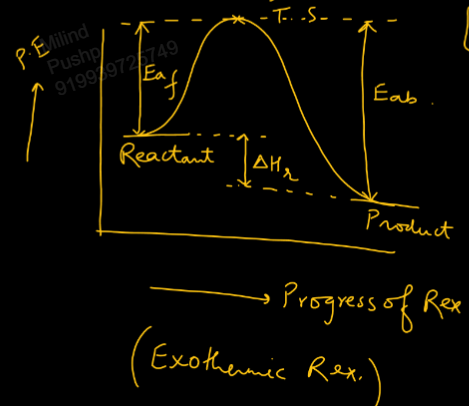 T. S.
P.E
Milind
Pushp
919939725749
Eaf
Eab.
Reactant
ΔHr
Product
Progress of Rex
(Exothermic Rex.)